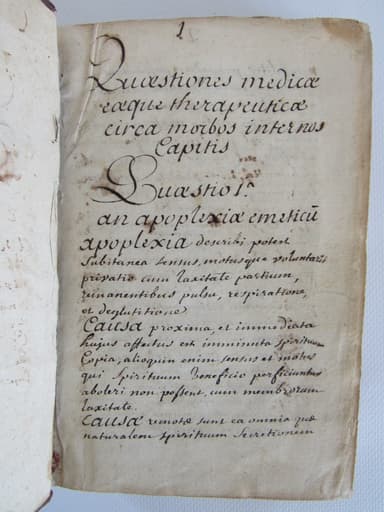 1
Quæstiones medicæ
eæque therapeuticæ
circa morbos internos
Capitis
Quæstio 1ª.
an apoplexiæ emeticū
apoplexia describi potest
subitanea sensus, motusque voluntarii
privatio cum laxitate partium,
remanentibus pulsu, respiratione,
et deglutitione
Causa proxima, et immediata
hujus affectus est imminuta spirituum
Copia, alioquin enim sensus et motus
qui Spirituum Beneficio perficiuntur
aboleri non possent, cum membrorum
laxitate.
Causæ remotæ sunt ea omnia quæ
naturalem spirituum Secretionem